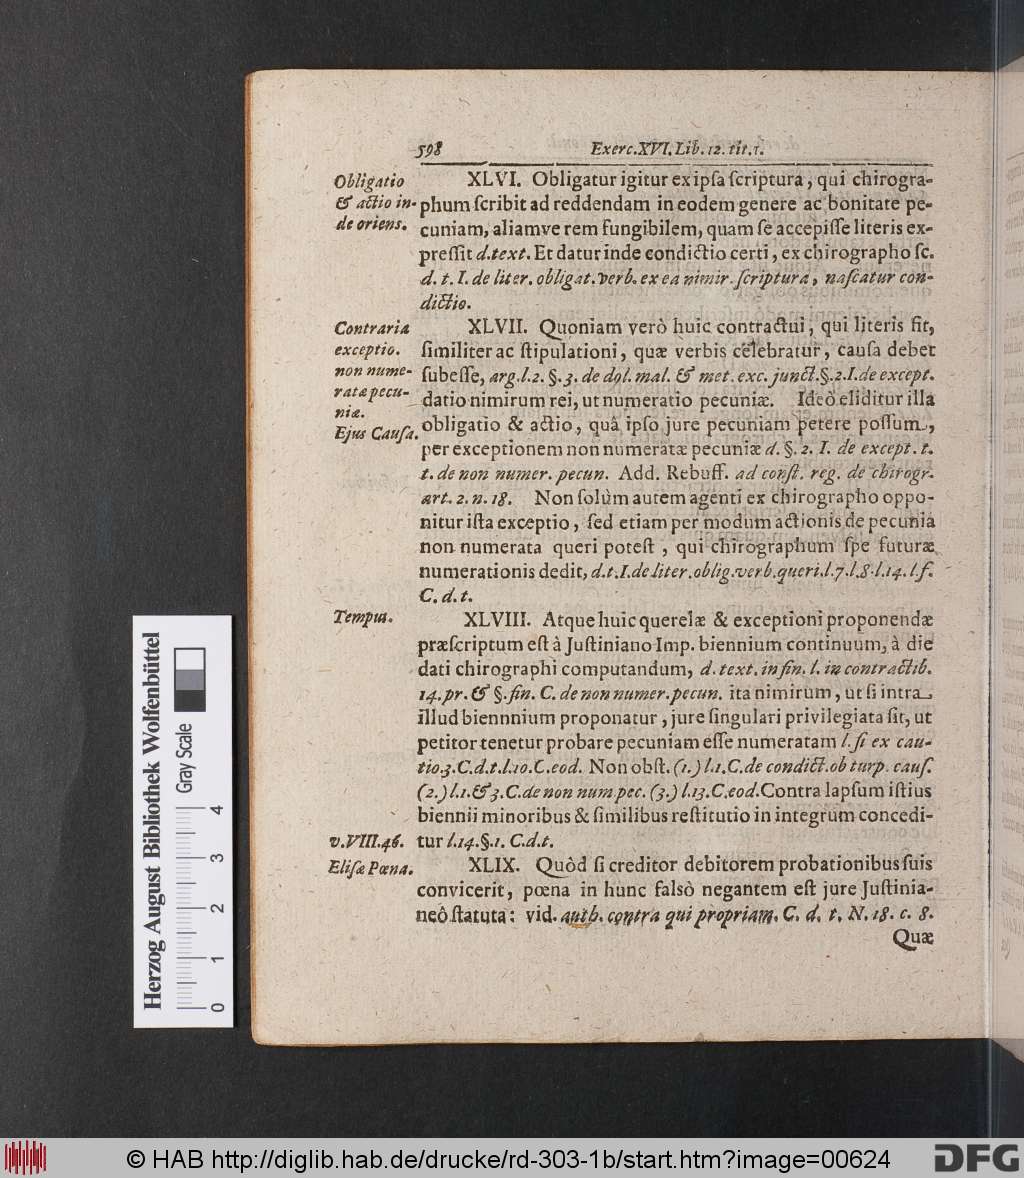 598 Exerc. XVI. Lib. 12. tit. 1.
Obligatio
& actio in-
de oriens.
XLVI. Obligatur igitur ex ipſa ſcriptura, qui chirogra-
phum ſcribit ad reddendam in eodem genere ac bonitate pe-
cuniam, aliamve rem fungibilem, quam ſe accepiſſe literis ex-
preſſit d. text. Et datur inde condictio certi, ex chirographo ſc.
d. t. I. de liter. obligat. verb. ex ea nimir. ſcriptura, naſcatur con-
dictio.
Contraria
exceptio.
non nume-
ratæ pecu-
niæ.
Ejus Cauſa.
XLVII. Quoniam verò huic contractui, qui literis fit,
ſimiliter ac ſtipulationi, quæ verbis celebratur, cauſa debet
ſubeſſe, arg. l. 2. §. 3. de dol. mal. & met. exc. junct. §. 2. I. de except.
datio nimirum rei, ut numeratio pecuniæ. Ideò eliditur illa
obligatio & actio, quâ ipſo jure pecuniam petere poſſum,
per exceptionem non numeratæ pecuniæ d. §. 2. I. de except. t.
t. de non numer. pecun. Add. Rebuff. ad conſt. reg. de chirogr.
art. 2. n. 18. Non ſolùm autem agenti ex chirographo oppo-
nitur iſta exceptio, ſed etiam per modum actionis de pecunia
non numerata queri poteſt, qui chirographum ſpe futuræ
numerationis dedit, d. t. I. de liter. oblig. verb. queri. l. 7. l. 8. l. 14. l. f.
C. d. t.
Tempus.
XLVIII. Atque huic querelæ & exceptioni proponendæ
præſcriptum eſt à Juſtiniano Imp. biennium continuum, à die
dati chirographi computandum, d. text. in fin. l. in contractib.
14. pr. & §. fin. C. de non numer. pecun. ita nimirum, ut ſi intra
illud biennnium proponatur, jure ſingulari privilegiata ſit, ut
petitor tenetur probare pecuniam eſſe numeratam l. ſi ex cau-
tio. 3. C. d. t. l. 10. C. eod. Non obſt. (1.) l. 1. C. de condict. ob turp. cauſ.
(2.) l. 1. & 3. C. de non num pec. (3.) l. 13. C. eod. Contra lapſum iſtius
biennii minoribus & ſimilibus reſtitutio in integrum concedi-
v. VIII. 46. tur l. 14. §. 1. C. d. t.
Eliſæ Pœna.
XLIX. Quòd ſi creditor debitorem probationibus ſuis
convicerit, pœna in hunc falsò negantem eſt jure Juſtinia-
neô ſtatuta: vid. auth. contra qui propriam. C. d. t. N. 18. c. 8.
Quæ
Herzog August Bibliothek Wolfenbüttel
Gray Scale
0 1 2 3 4
© HAB http://diglib.hab.de/drucke/rd-303-1b/start.htm?image=00624
DFG